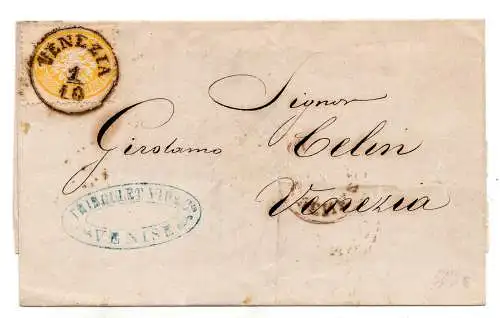 VENEZIA
1
10
Signor
Girolamo Celin
Venezia
VENISE